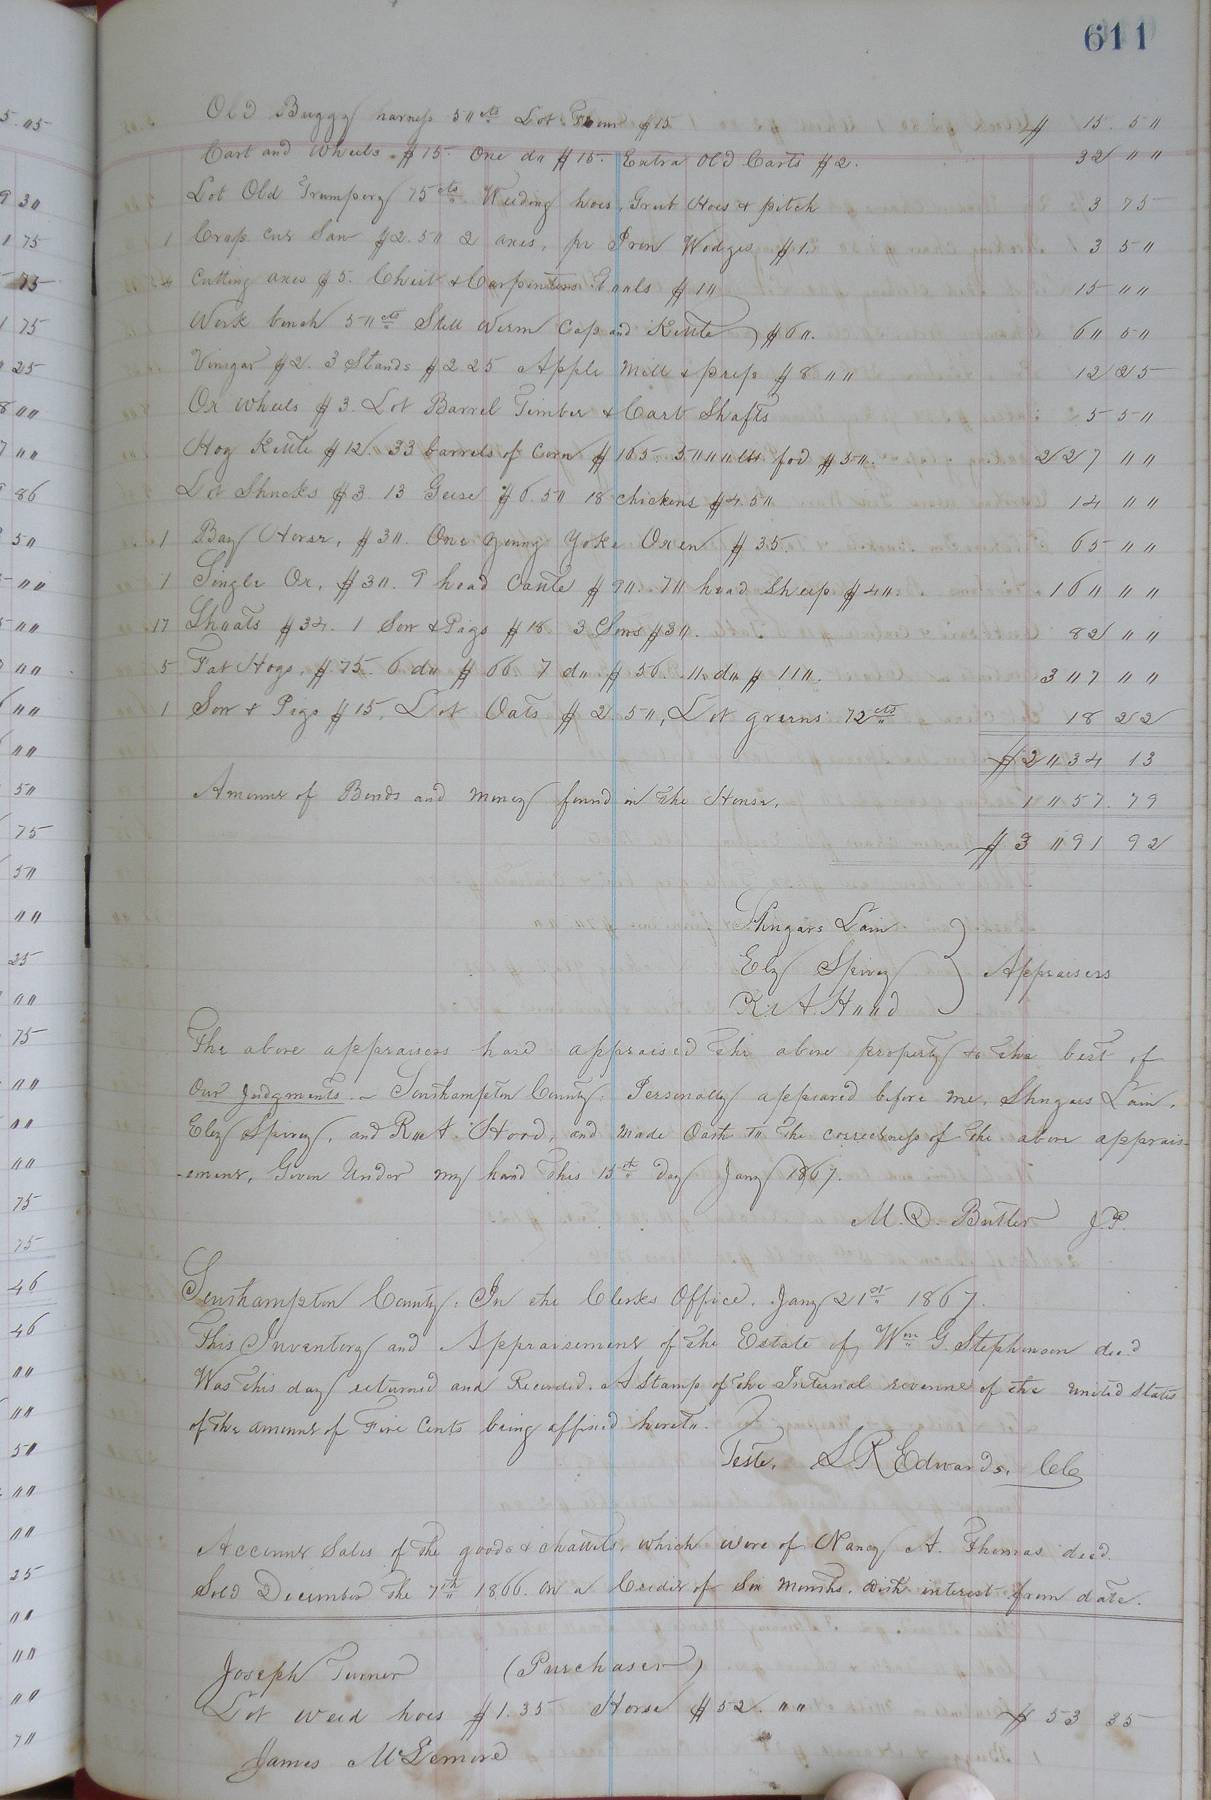 611
Old Buggy harness 50 cts Lot Room $15 $ 15 50
Cart and Wheels $15. One do $15. Extra Old Carts $2. 32 00
Lot Old Trumpery 75 cts Weeding hoes, Grub Hoes & pitch 3 75
1 Crop cut Saw $2.50 2 axes, pr Iron Wedges $1. 3 50
4 Cutting axes $5. Chest & Carpenters Tools $10 15 00
Work bench 50 cts Still Worm Cap and Kettle $60. 60 50
Vinegar $2. 3 Stands $2 25 Apple Mill & press $8 00 12 25
Ox Wheels $3. Lot Barrel Timber & Cart Shafts 5 50
Hog Kettle $12. 33 barrels of Corn $165. 5000 lbs fod $50. 227 00
Lot Shucks $3. 13 Geese $6.50 18 chickens $4.50 14 00
1 Bay Horse, $30. One young Yoke Oxen $35. 65 00
1 Single Ox, $30. 9 head Cattle $90. 70 head Sheep $40. 160 00
17 Shoats $34. 1 Sow & Pigs $18 3 Sows $30. 82 00
5 Fat Hogs, $75. 6 do $66. 7 do $56. 11 do $110. 307 00
1 Sow & Pigs $15, Lot Oats $2.50, Lot greens 72 cts 18 22
$2034 13
Amount of Bonds and money found in the House. 1057.79
$3091 92
Shugars Lain
Ely Spivey } Appraisers
Ro A. Hood
The above appraisers have appraised the above property to the best of
Our Judgments. - Southampton County. Personally appeared before me, Shugars Lain,
Ely Spivey, and Ro A. Hood, and made Oath to the correctness of the above apprais-
-ement, Given Under my hand this 15th day Jany 1867.
M. D. Butler J.P.
Southampton County: In the Clerks Office. Jany 21st 1867.
This Inventory and Appraisement of the Estate of Wm G. Stephenson decd
Was this day returned and Recorded. A Stamp of the Internal revenue of the United States
of the amount of Five Cents being affixed hereto.
Teste, L R Edwards. CC
Account Sales of the goods & chattels, which were of Nancy A. Thomas decd
Sold December the 7th 1866. on a Credit of Six months. with interest from date.
Joseph Turner (Purchaser)
Lot weed hoes $1.35 Horse $52.00 $ 53 35
James McLemore